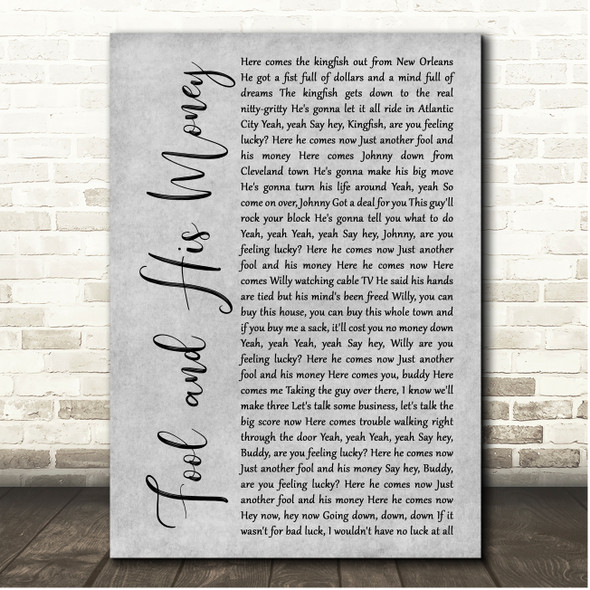 Fool and His Money
Here comes the kingfish out from New Orleans
He got a fist full of dollars and a mind full of
dreams The kingfish gets down to the real
nitty-gritty He's gonna let it all ride in Atlantic
City Yeah, yeah Say hey, Kingfish, are you feeling
lucky? Here he comes now Just another fool and
his money Here comes Johnny down from
Cleveland town He's gonna make his big move
He's gonna turn his life around Yeah, yeah So
come on over, Johnny Got a deal for you This guy'll
rock your block He's gonna tell you what to do
Yeah, yeah Yeah, yeah Say hey, Johnny, are you
feeling lucky? Here he comes now Just another
fool and his money Here he comes now Here
comes Willy watching cable TV He said his hands
are tied but his mind's been freed Willy, you can
buy this house, you can buy this whole town and
if you buy me a sack, it'll cost you no money down
Yeah, yeah Yeah, yeah Say hey, Willy are you
feeling lucky? Here he comes now Just another
fool and his money Here comes you, buddy Here
comes me Taking the guy over there, I know we'll
make three Let's talk some business, let's talk the
big score now Here comes trouble walking right
through the door Yeah, yeah Yeah, yeah Say hey,
Buddy, are you feeling lucky? Here he comes now
Just another fool and his money Say hey, Buddy,
are you feeling lucky? Here he comes now Just
another fool and his money Here he comes now
Hey now, hey now Going down, down, down If it
wasn't for bad luck, I wouldn't have no luck at all